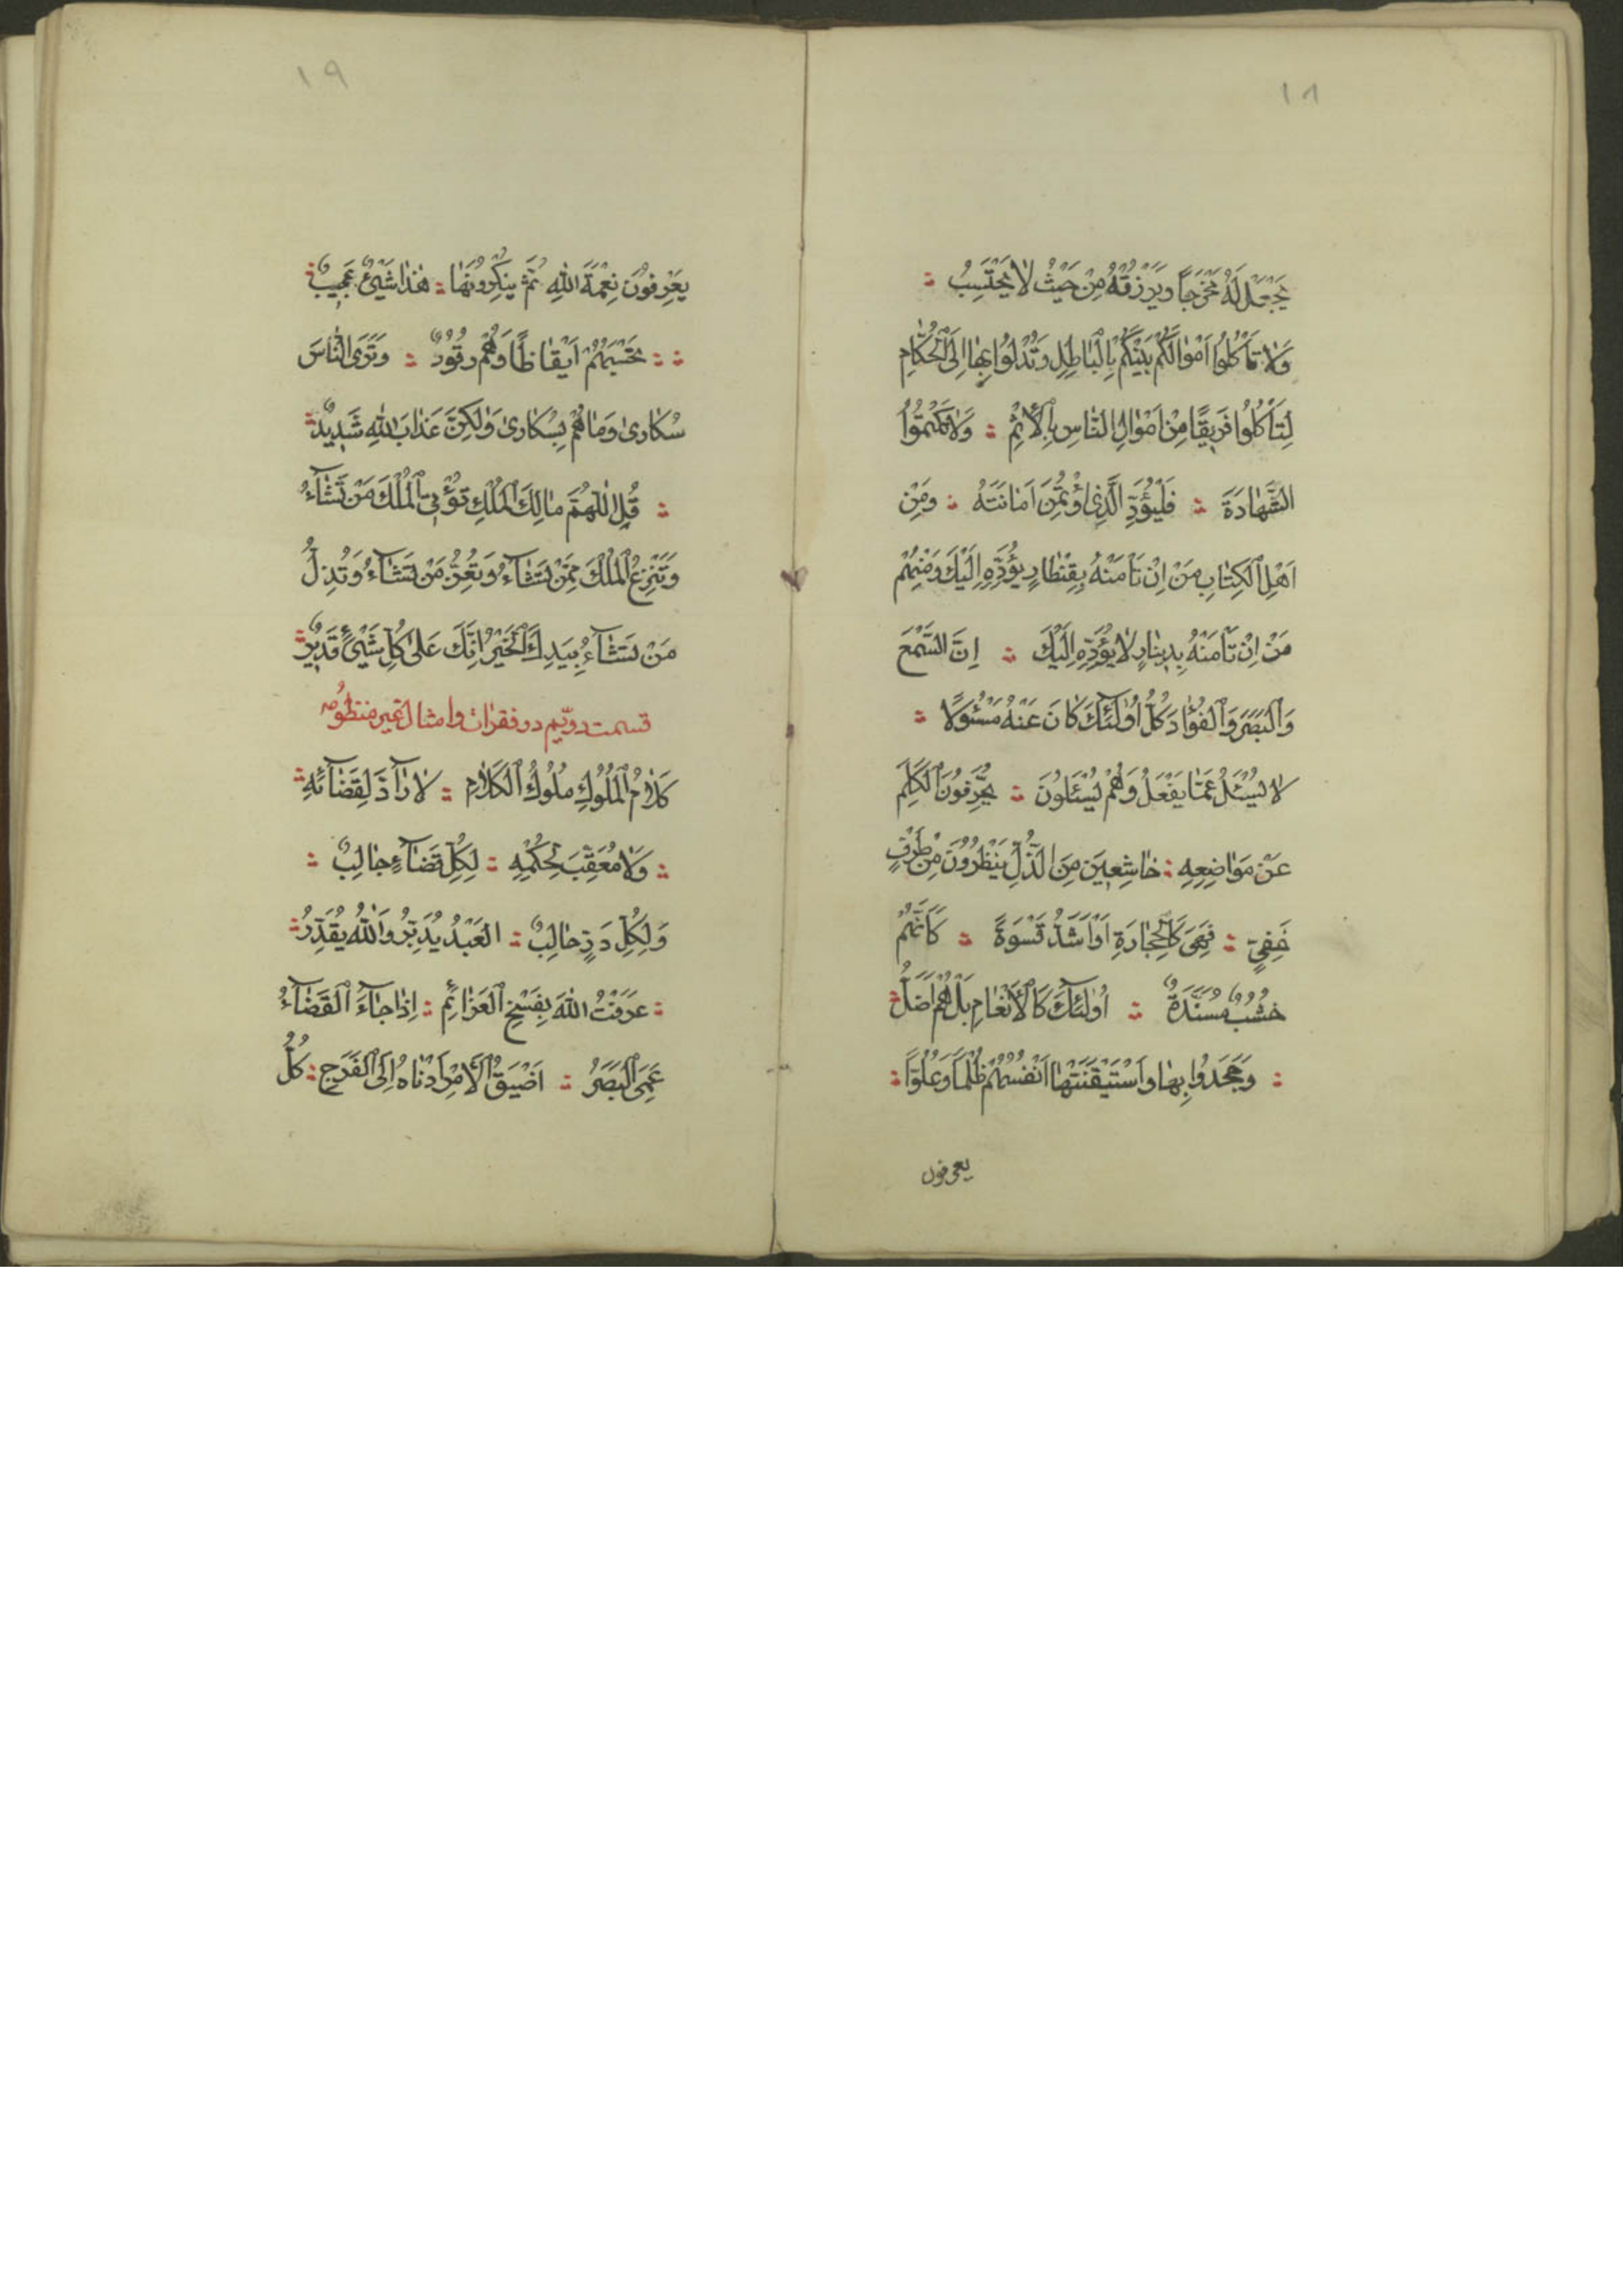 ١٨
يَجْعَلْ لَهُ مَخْرَجاً وَيَرْزُقْهُ مِنْ حَيْثُ لَا يَحْتَسِبُ
وَلَا تَأْكُلُوا اَمْوَالَكُمْ بَيْنَكُمْ بِالْبَاطِلِ وَتُدْلُوا بِهَا اِلَى الْحُكَّامِ
لِتَأْكُلُوا فَرِيقًا مِنْ اَمْوَالِ النَّاسِ بِالْأِثْمِ ؞ وَلَا تَكْتُمُوا
الشَّهَادَةَ ؞ فَلْيُؤَدِّ الَّذِي اؤْتُمِنَ اَمَانَتَهُ ؞ وَمِنْ
اَهْلِ الْكِتَابِ مَنْ اِنْ تَأْمَنْهُ بِقِنْطَارٍ يُؤَدِّهِ اِلَيْكَ وَمِنْهُمْ
مَنْ اِنْ تَأْمَنْهُ بِدِينَارٍ لَا يُؤَدِّهِ اِلَيْكَ ؞ اِنَّ السَّمْعَ
وَالْبَصَرَ وَالْفُؤَادَ كُلُّ اُولٰئِكَ كَانَ عَنْهُ مَسْئُولًا ؞
لَا يُسْئَلُ عَمَّا يَفْعَلُ وَهُمْ يُسْئَلُونَ ؞ يُحَرِّفُونَ الْكَلِمَ
عَنْ مَوَاضِعِهِ ؞ خَاشِعِينَ مِنَ الذُّلِّ يَنْظُرُونَ مِنْ طَرْفٍ
خَفِيٍّ ؞ فَهِيَ كَالْحِجَارَةِ اَوْ اَشَدُّ قَسْوَةً ؞ كَاَنَّهُمْ
خُشُبٌ مُسَنَّدَةٌ ؞ اُولٰئِكَ كَالْأَنْعَامِ بَلْ هُمْ اَضَلُّ ؞
؞ وَجَحَدُوا بِهَا وَاسْتَيْقَنَتْهَا اَنْفُسُهُمْ ظُلْمًا وَعُلُوًّا ؞
يعرفون
١٩
يَعْرِفُونَ نِعْمَةَ اللهِ ثُمَّ يُنْكِرُونَهَا ؞ هٰذَا شَيْئٌ عَجِيبٌ ؞
؞ ؞ تَحْسَبُهُمْ اَيْقَاظًا وَهُمْ رُقُودٌ ؞ وَتَرَى النَّاسَ
سُكَارىٰ وَمَا هُمْ بِسُكَارىٰ وَلٰكِنَّ عَذَابَ اللهِ شَدِيدٌ ؞
؞ قُلِ اللّٰهُمَّ مَالِكَ الْمُلْكِ تُؤْتِي الْمُلْكَ مَنْ تَشَآءُ
وَتَنْزِعُ الْمُلْكَ مِمَّنْ تَشَآءُ وَتُعِزُّ مَنْ تَشَآءُ وَتُذِلُّ
مَنْ تَشَآءُ بِيَدِكَ الْخَيْرُ اِنَّكَ عَلىٰ كُلِّ شَيْئٍ قَدِيرٌ ؞
قسمت دوّيم در فقرات و امثال غير منظومه
كَلَامُ الْمُلُوكِ مُلُوكُ الْكَلَامِ ؞ لَا رَآدَّ لِقَضَآئِهِ ؞
؞ وَلَا مُعَقِّبَ لِحُكْمِهِ ؞ لِكُلِّ قَضَآءٍ جَالِبٌ ؞
وَلِكُلِّ دَرٍّ حَالِبٌ ؞ الْعَبْدُ يُدَبِّرُ وَاللهُ يُقَدِّرُ ؞
؞ عَرَفْتُ اللهَ بِفَسْخِ الْعَزَائِمِ ؞ اِذَا جَآءَ الْقَضَآءُ
عَمِيَ الْبَصَرُ ؞ اَضْيَقُ الْأَمْرِ اَدْنَاهُ اِلَى الْفَرَجِ ؞ كُلُّ